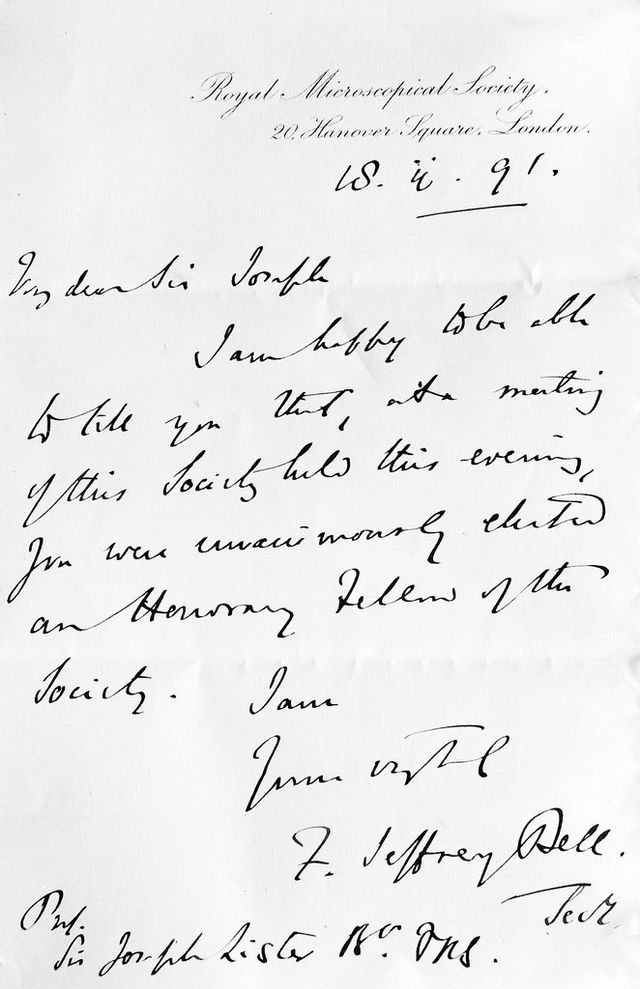 Royal Microscopical Society,
20, Hanover Square, London.
18. ii. 91.
My dear Sir Joseph
I am happy to be able
to tell you that, at a meeting
of this Society held this evening,
you were unanimously elected
an Honorary Fellow of the
Society. I am
Yours very truly
F. Jeffrey Bell.
Secr.
Prof.
Sir Joseph Lister Bt. FRS.